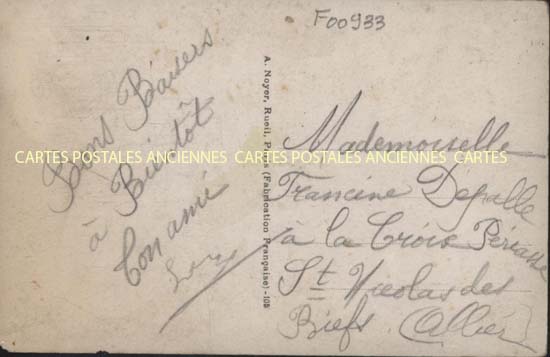 F00933
Bons Baisers
à Bientôt
Ton ami
A. Noyer, Rueil, (Fabrication Française) - 105
CARTES POSTALES ANCIENNES CARTES POSTALES ANCIENNES CARTES
Mademoiselle
Francine Dépalle
à la Croix
St Nicolas des
Biefs (Allier)